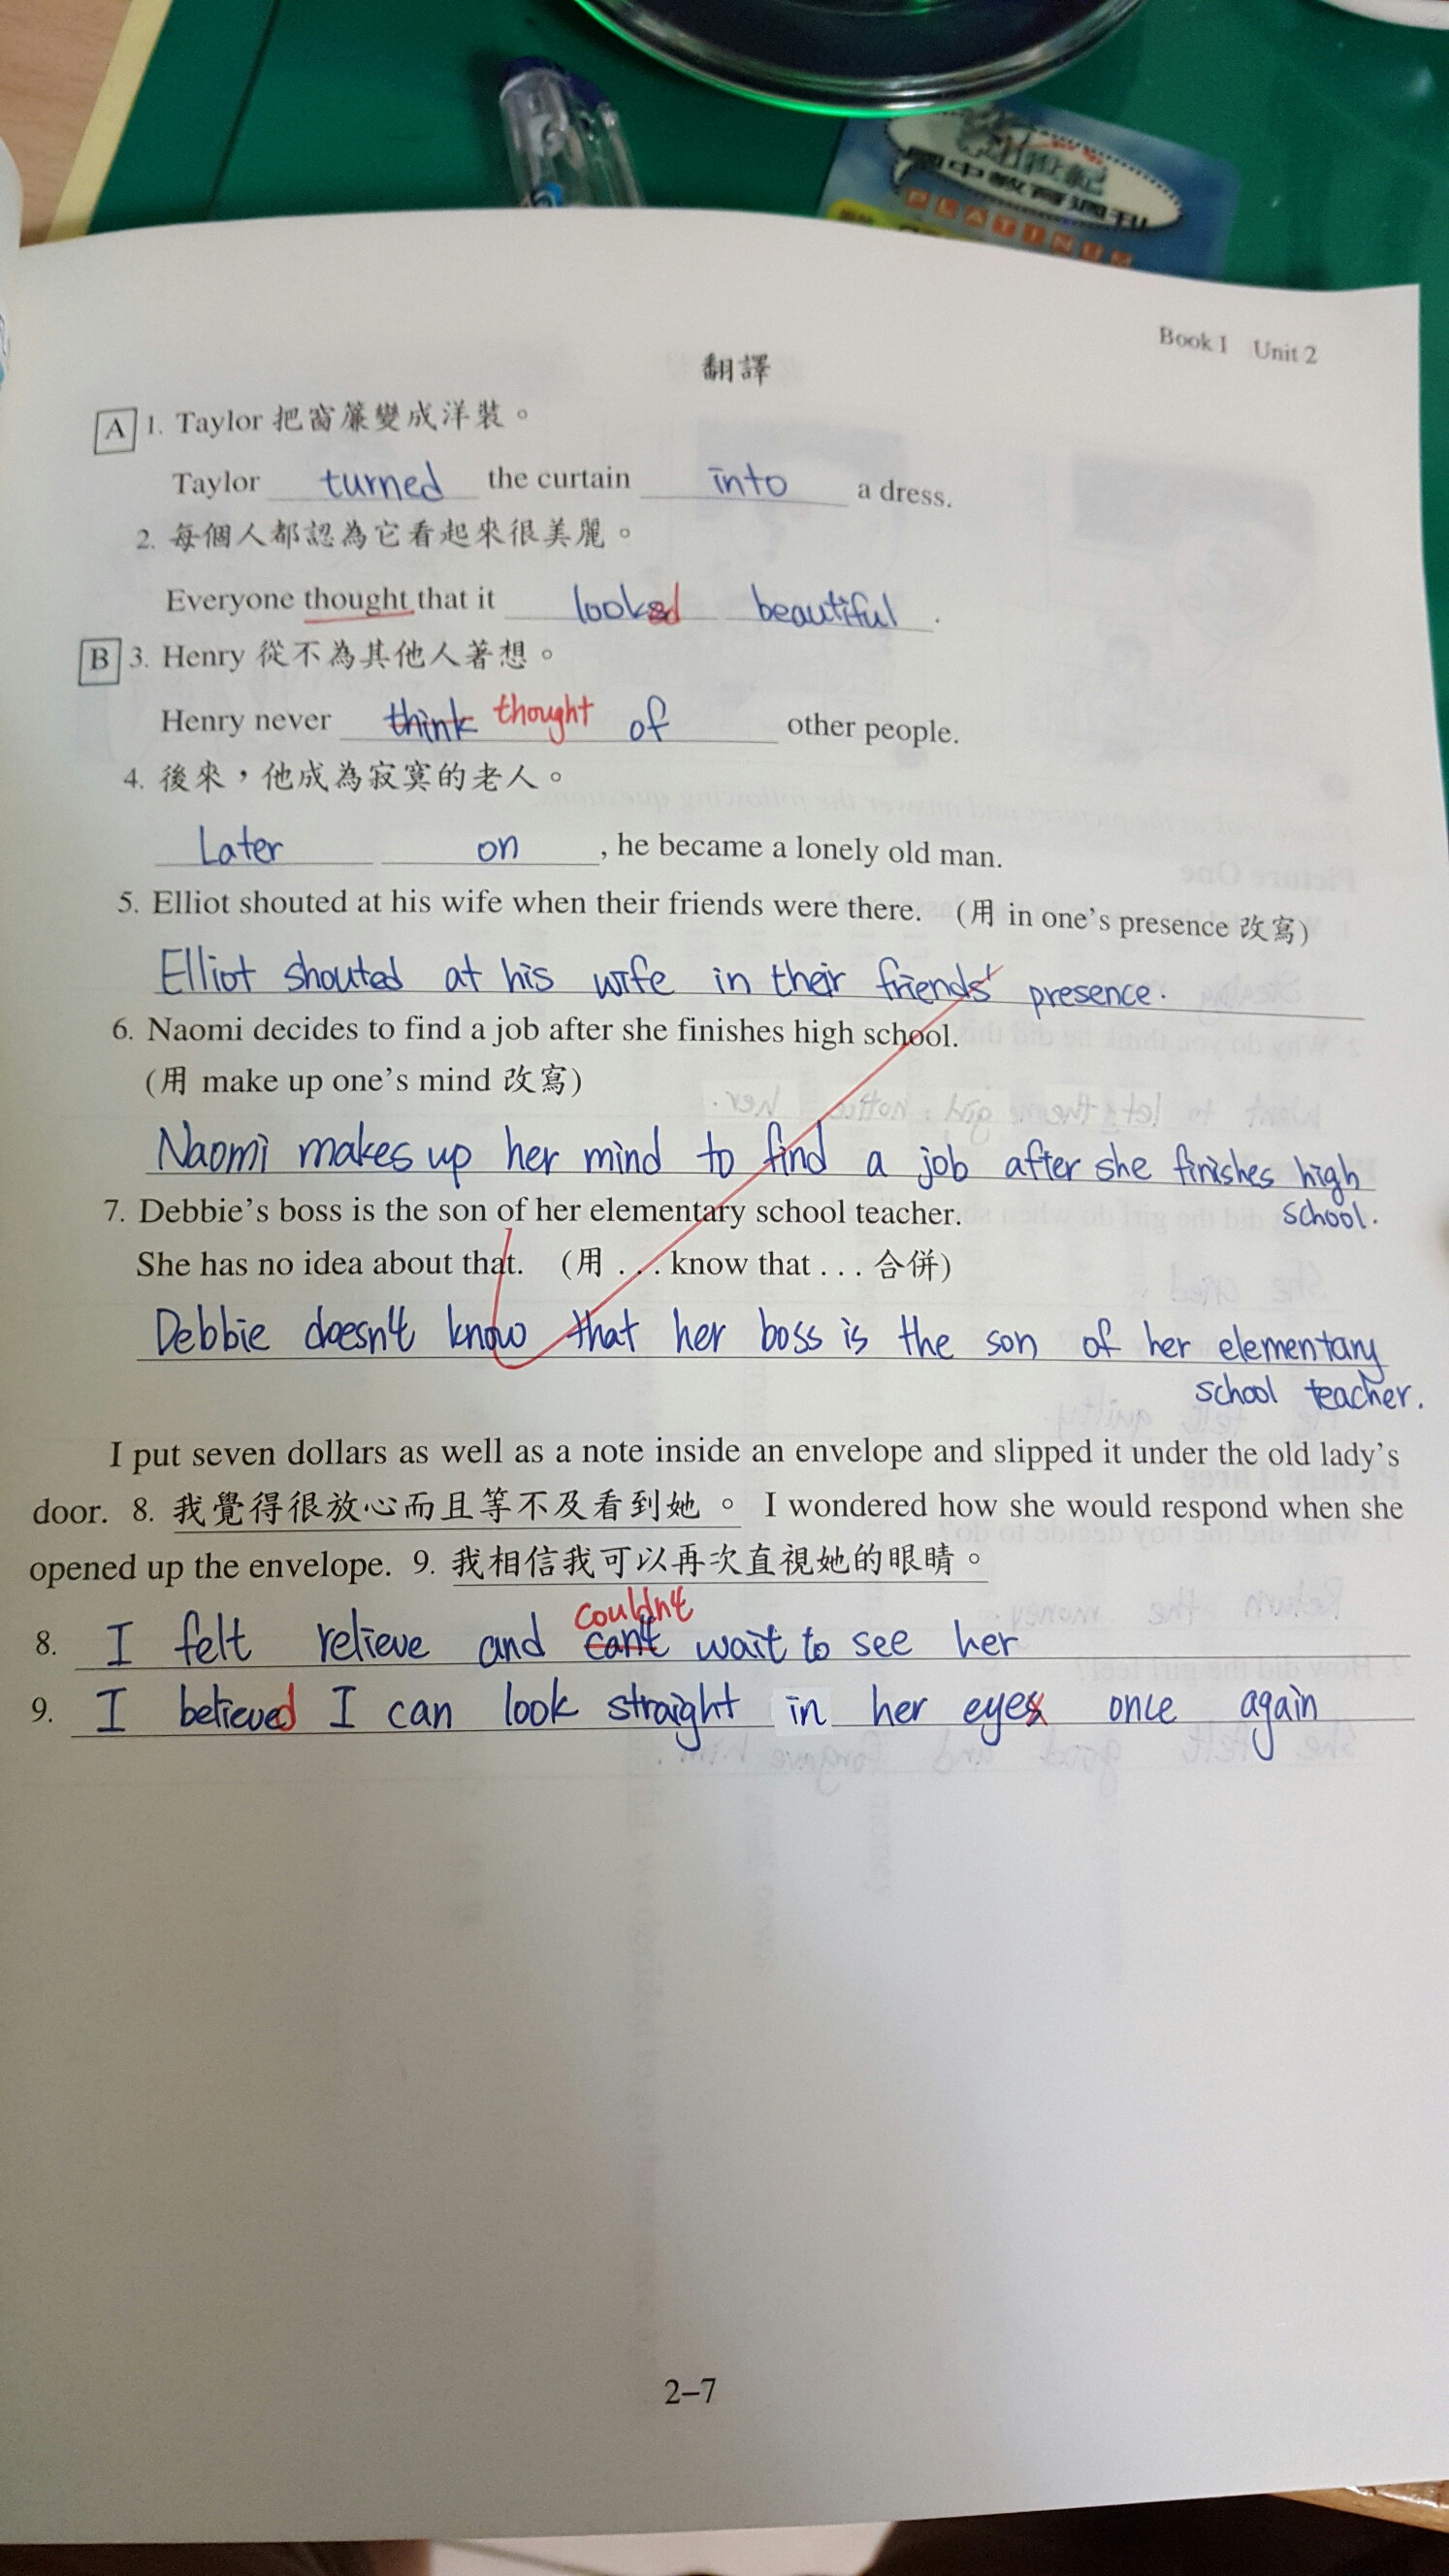 世紀
國中教育週刊
PLATINUM
Book I Unit 2
翻譯
A 1. Taylor 把窗簾變成洋裝。
Taylor turned the curtain into a dress.
2. 每個人都認為它看起來很美麗。
Everyone thought that it looked beautiful.
B 3. Henry 從不為其他人著想。
Henry never think thought of other people.
4. 後來，他成為寂寞的老人。
Later on, he became a lonely old man.
5. Elliot shouted at his wife when their friends were there. (用 in one's presence 改寫)
Elliot shouted at his wife in their friends' presence.
6. Naomi decides to find a job after she finishes high school.
(用 make up one's mind 改寫)
Naomi makes up her mind to find a job after she finishes high
school.
7. Debbie's boss is the son of her elementary school teacher.
She has no idea about that. (用 . . . know that . . . 合併)
Debbie doesn't know that her boss is the son of her elementary
school teacher.
I put seven dollars as well as a note inside an envelope and slipped it under the old lady's
door. 8. 我覺得很放心而且等不及看到她。 I wondered how she would respond when she
opened up the envelope. 9. 我相信我可以再次直視她的眼睛。
couldn't
8. I felt relieve and can't wait to see her
9. I believed I can look straight in her eyes once again
2–7